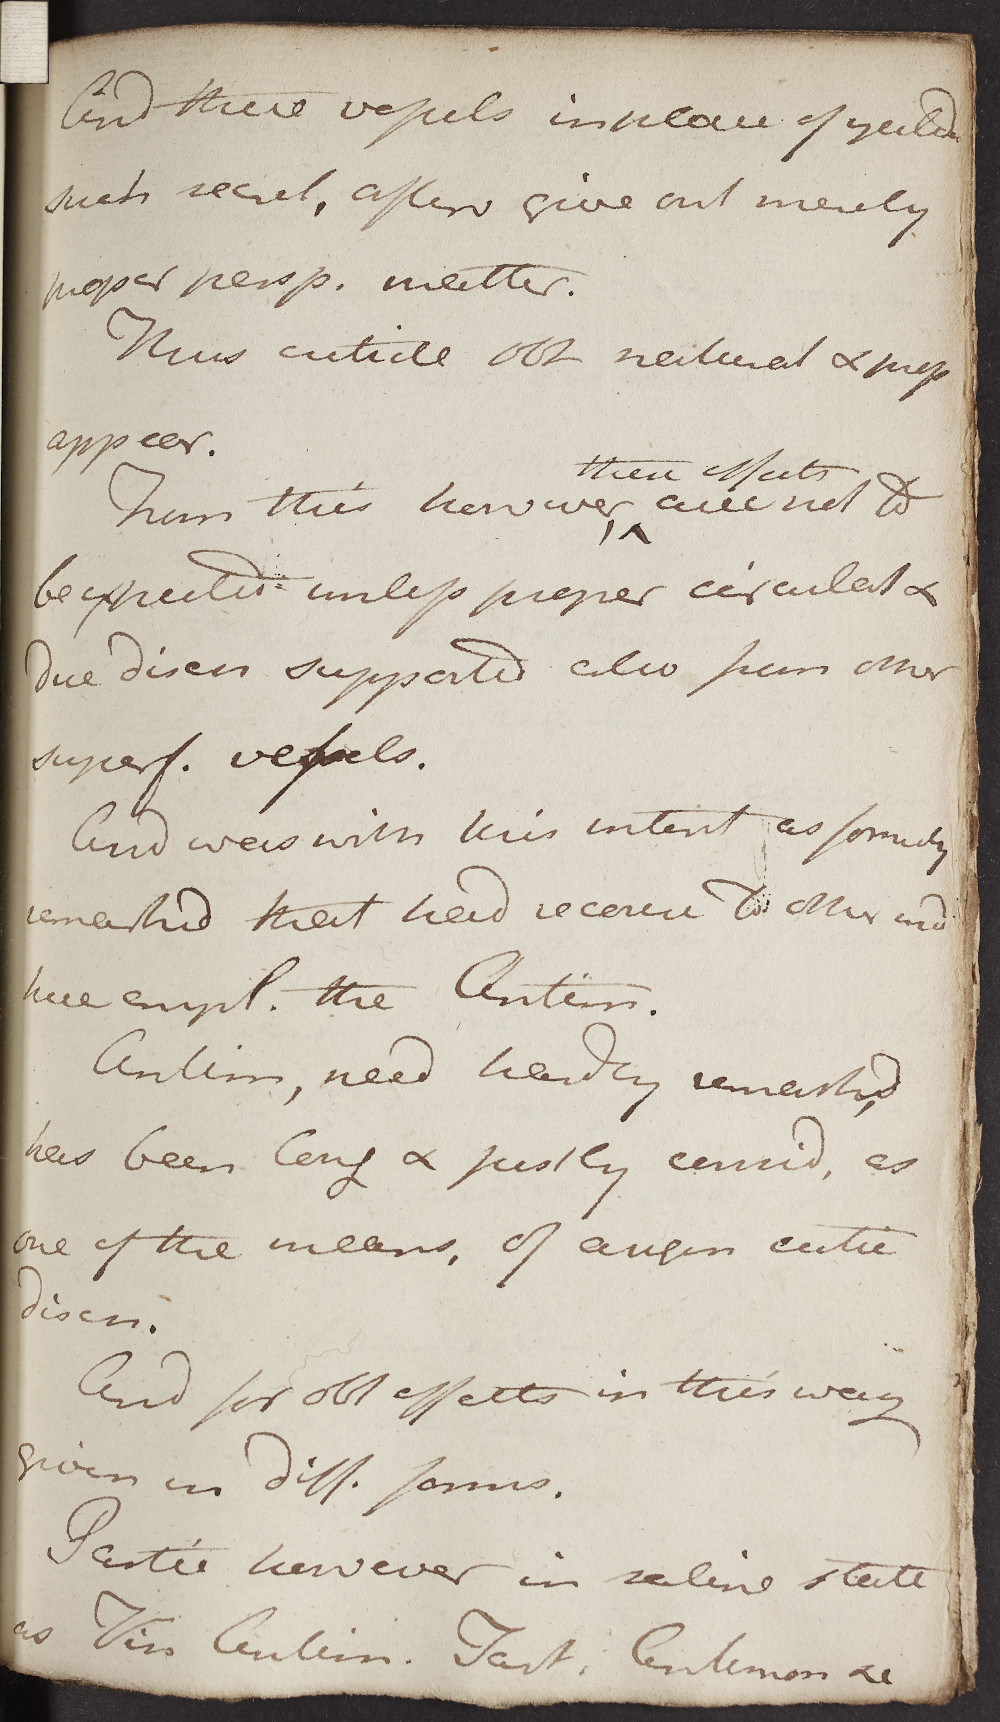 And these vessels in place of yieldin
such secret, often give out merely
proper persp. matter.
Thus cuticle obt natural & prop
appear.
From this however, ^these effects^ are not to
be expected unless proper circulat &
due discn supported also from other
superf. vessels.
And was with this intent as formerly
remarked that had recourse to other med
here empl. the Antim.
Antim, need hardly remark'd,
has been long & justly consid, as
one of the means, of augm cutic
discn.
And for obt effects in this way
given in diff. forms.
Partic however in saline state
as Vin Antim. Tart. Antimon &c